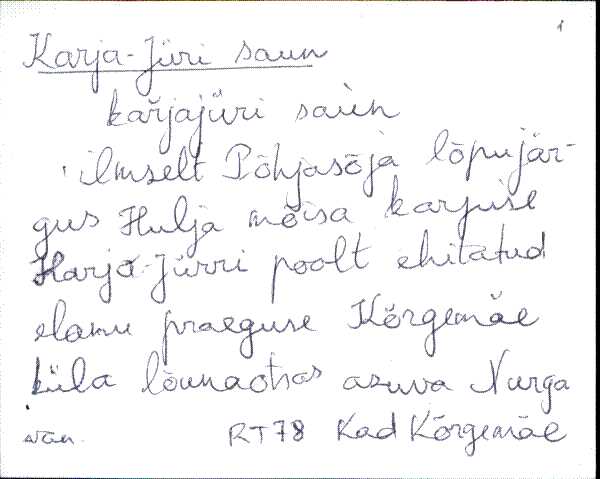 1
Karja-Jüri saun
karjajüri saùn
ilmselt Põhjasõja lõpujär-
gus Hulja mõisa karjuse
Karja-Jürri poolt ehitatud
elamu praeguse Kõrgemäe
küla lõunaotsas asuva Nurga
RT78 Kad Kõrgemäe